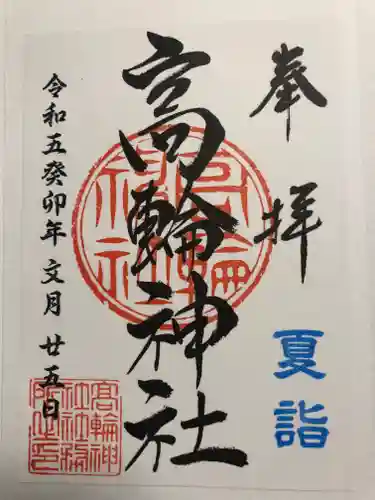 奉拝
夏詣
高輪神社
令和五癸卯年 文月 廿五日
高輪
神社
高輪神
社社務
所之印